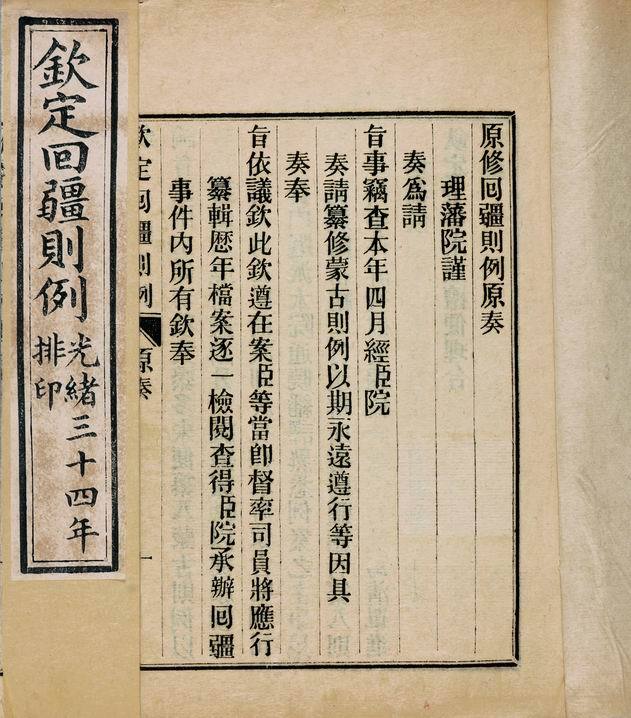 欽定回疆則例
光緒三十四年
排印
原修回疆則例原奏
理藩院謹
奏為請
旨事竊查本年四月經臣院
奏請纂修蒙古則例以期永遠遵行等因具
奏奉
旨依議欽此欽遵在案臣等當卽督率司員將應行
纂輯歷年檔案逐一檢閱查得臣院承辦回疆
事件內所有欽奉
欽定回疆則例 原奏 一